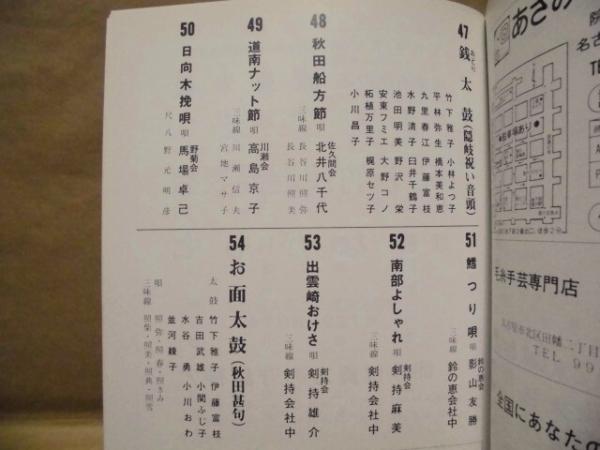 47 銭太鼓(隠岐祝い音頭)
竹下雅子 小林よつ子
平林弥生 橋本美和恵
九里春江 伊藤富枝
水野清子 臼井千鶴子
池田明美 野沢栄
安東フミエ 大野コノ
柘植万里子 梶原セツ子
小川昌子
48 秋田船方節
佐久間会
唄 北井八千代
三味線 長谷川照弥
長谷川照美
49 道南ナット節
川瀬会
唄 高島京子
三味線 川瀬信夫
宮地マサ子
50 日向木挽唄
野菊会
唄 馬場卓己
尺八 野元明彦
51 鱈つり唄
鈴の恵会
唄 影山友勝
三味線 鈴の恵会社中
52 南部よしゃれ
剣持会
唄 剣持麻美
三味線 剣持会社中
53 出雲崎おけさ
剣持会
唄 剣持雄介
三味線 剣持会社中
54 お面太鼓(秋田甚句)
太鼓 竹下雅子 伊藤富枝
吉田武雄 小関ふじ子
水谷勇 小川おわ
並河綾子
唄 照弥・照春・照きみ
三味線 照柴・照美・照典・照雪
あさの
名古
TE
毛糸手芸専門店
名古屋市北区田幡二丁目
TEL 99
全国にあなたの